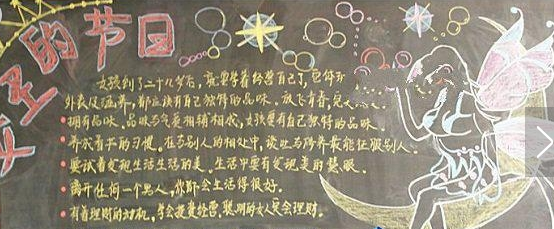 女生的节日
女孩到了二十几岁后，就要学着经营自己了，
外表及涵养，都应该有自己独特的品味。放飞青春，
拥有品味。品味与气质相辅相成，女孩要有自己独特的品味。
养成看书的习惯。在与别人的相处中，谈吐与修养最能征服别人。
要试着发现生活生活的美。生活中要有发现美的慧眼。
离开任何一个男人，你都会生活得很好。
有着理财的动机，学会投资经营，聪明的女人更会理财。